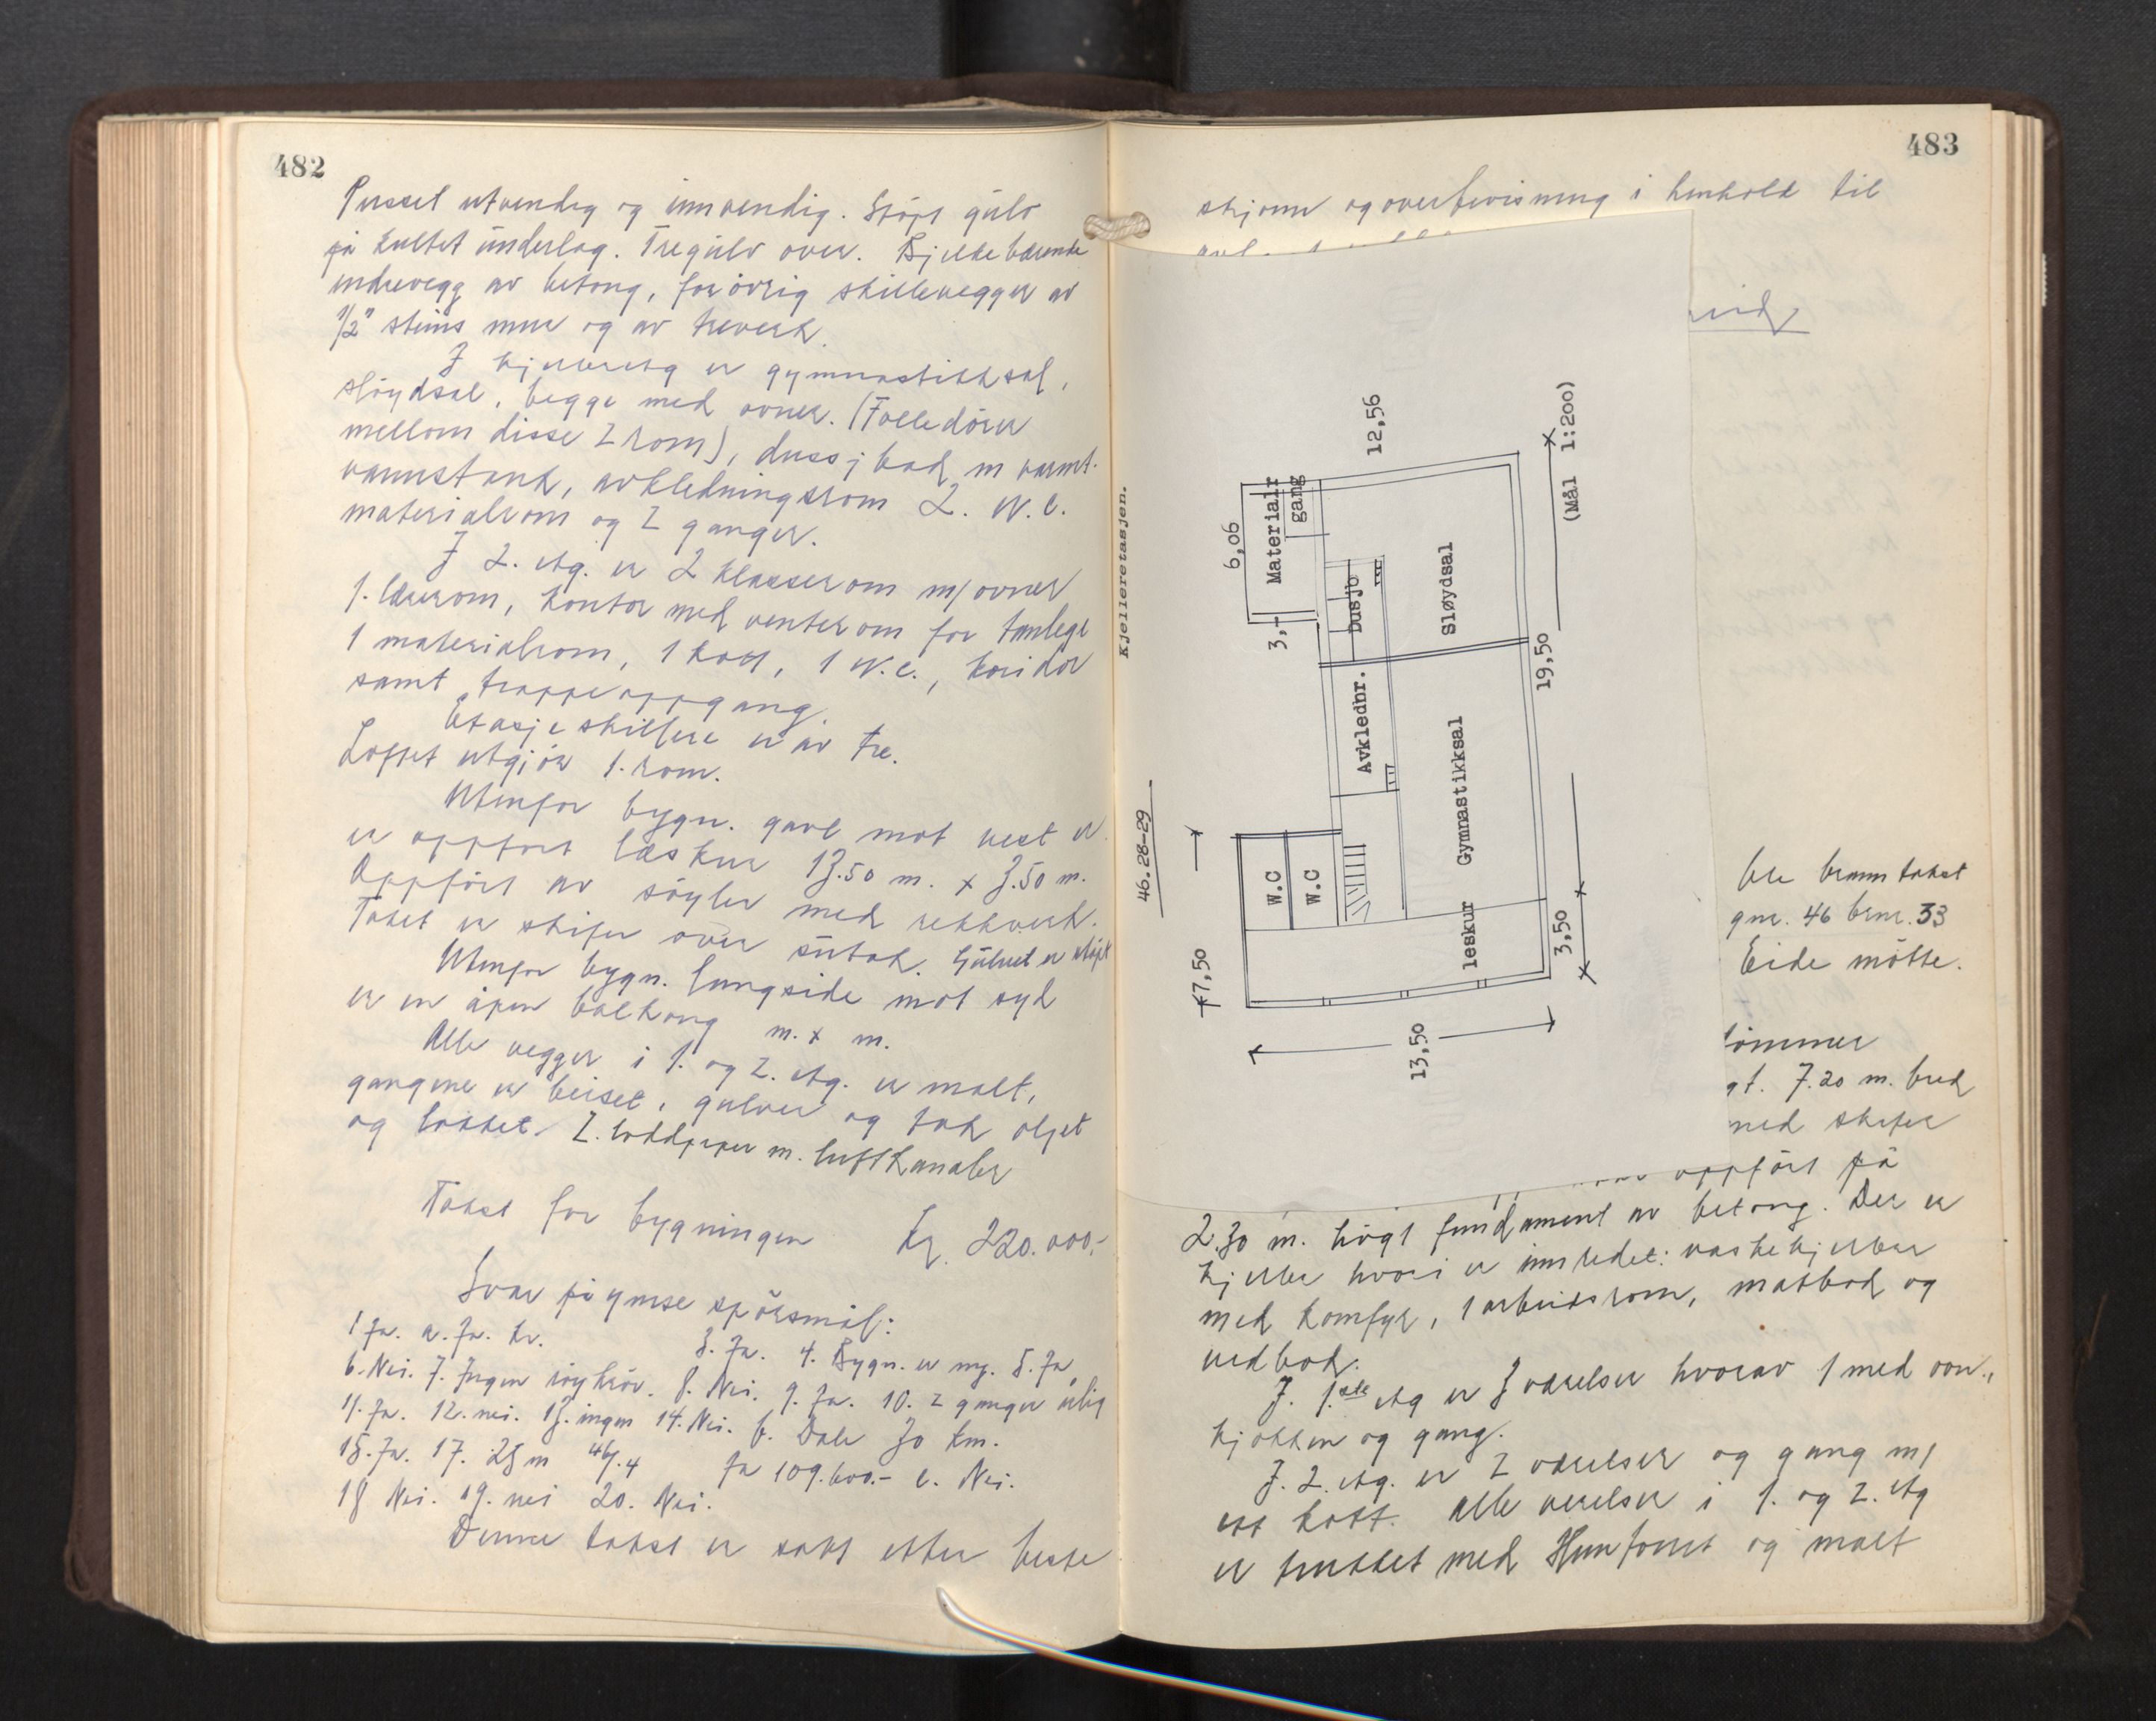 482
Pusset utvendig og innvendig. Støpt gulv
på kultet underlag. Tregulv over. Bjelkebærende
indrevegg av betong, forøvrig skillevegger av
1/2" steins mur og av treverk.
I kjelleretg er gymnastikksal,
sløydsal, begge med ovner. (Folledører
mellom disse 2 rom), dusjbad m varmt-
vannstank, avkledningsrom 2. W.C.
materialrom og 2 ganger.
I 2. etg. er 2 klasserom m/ovner
1. lærerom, kontor med venterom for tanlege
1 materialrom, 1 kott, 1 W.C., koridor
samt trappeoppgang.
Etasjeskillere er av tre.
Loftet utgjör 1. rom.
Utenfor bygn. gavl mot vest er
er oppfört læskur 13.50 m. x 3.50 m.
Oppfört av söyler med rekkverk.
Taket er skifer over sutak. Gulvet er stöpt
Utenfor bygn. langside mot syd
er en åpen balkong m. x m.
Alle vegger i 1. og 2. etg. er malt,
gangene er beiset, gulver og tak oljet
og lakket. 2. luktpiper m. luftkanaler
Takst for bygningen Kr. 220.000.-
Svar på ymse spörsmål:
1 Ja. a. Ja. kr. 3. Ja. 4. Bygn. er ny. 5. Ja
6. Nei. 7. Ingen röykrör. 8. Nei. 9. Ja. 10. 2 ganger årlig
11. Ja. 12. nei. 13. ingen 14. Nei. b. Dale 30 km.
15. Ja. 17. 25 m 46/.4 Ja 109.600.- c. Nei.
18 Nei. 19. nei 20. Nei.
Denne takst er satt etter beste
483
skjønn og overbevisning i henhold til
Kjelleretasjen.
46.28-29
6,06
Materialr
gang
12,56
3,-
Dusjb
Sløydsal
(Mål 1:200)
19,50
Avklednr.
Gymnastikksal
W.C
W.C
leskur
3,50
7,50
13,50
ble branntakst
gnr. 46 brnr. 33
Eide mötte.
tömmer
gt. 7.20 m. bred
med skifer
oppfört på
2.30 m. högt fundament av betong. Der er
kjeller hvori er innredet: vaskekjeller
med komfyr, 1 arbeidsrom, matbod og
vedbod.
I. 1.ste etg er 3 værelser hvorav 1 med ovn.,
kjökken og gang.
I. 2. etg. er 2 værelser og gang m/
ett kott. Alle værelser i 1. og 2. etg
er trukket med Hunfonet og malt